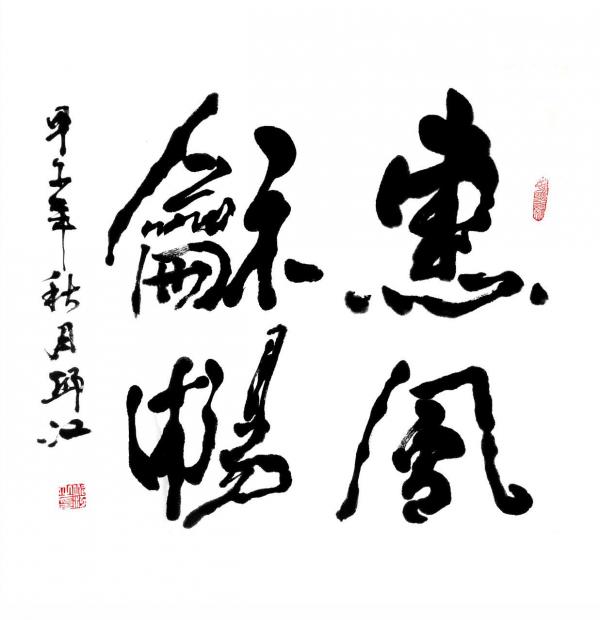 惠風
龢暢
甲子年秋月江